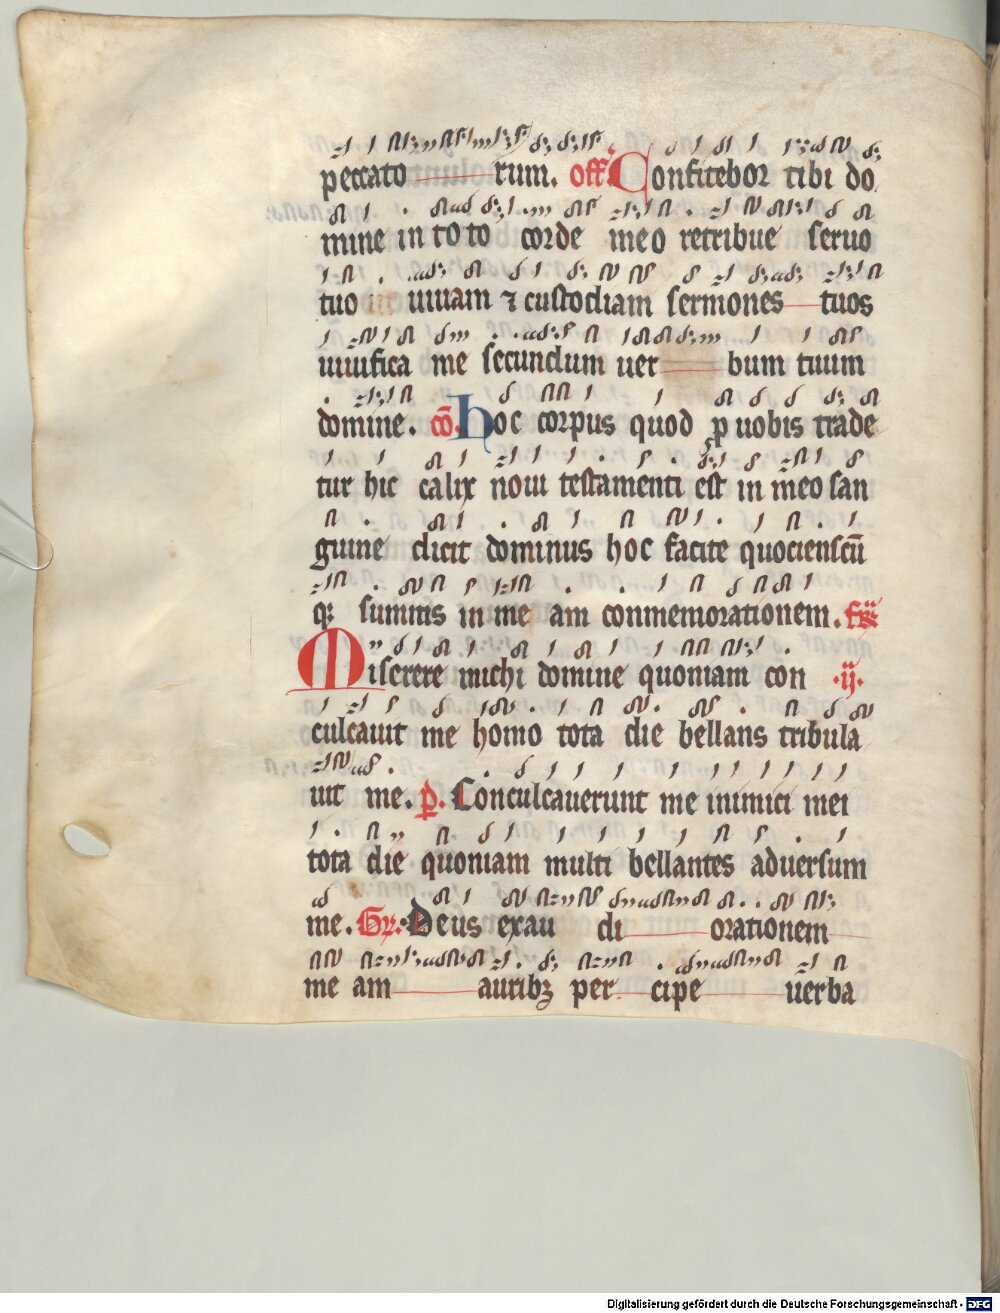 peccato rum. off. Confitebor tibi do
mine in toto corde meo retribue seruo
tuo uiuam ⁊ custodiam sermones tuos
uiuifica me secundum uer bum tuum
domine. cō. hoc corpus quod ꝓ uobis trade
tur hic calix noui testamenti est in meo san
guine dicit dominus hoc facite quociensc̄u
qꝫ sumitis in me am conmemorationem. fr̄
Miserere michi domine quoniam con .ij.
culcauit me homo tota die bellans tribula
uit me. p̄. Conculcauerunt me inimici mei
tota die quoniam multi bellantes aduersum
me. Gr. Deus exau di orationem
me am auribꝫ per cipe uerba
Digitalisierung gefördert durch die Deutsche Forschungsgemeinschaft - DFG